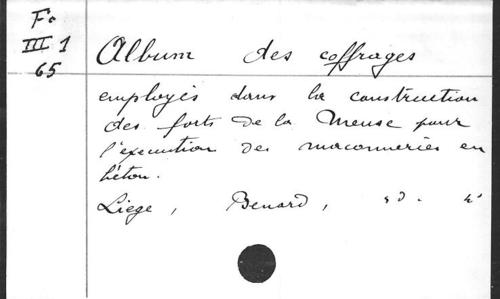 Fo
III 1
65
Album des coffrages
employés dans la construction
des forts de la Meuse pour
l'execution des maconneries en
béton.
Liege, Benard, sd. 4°